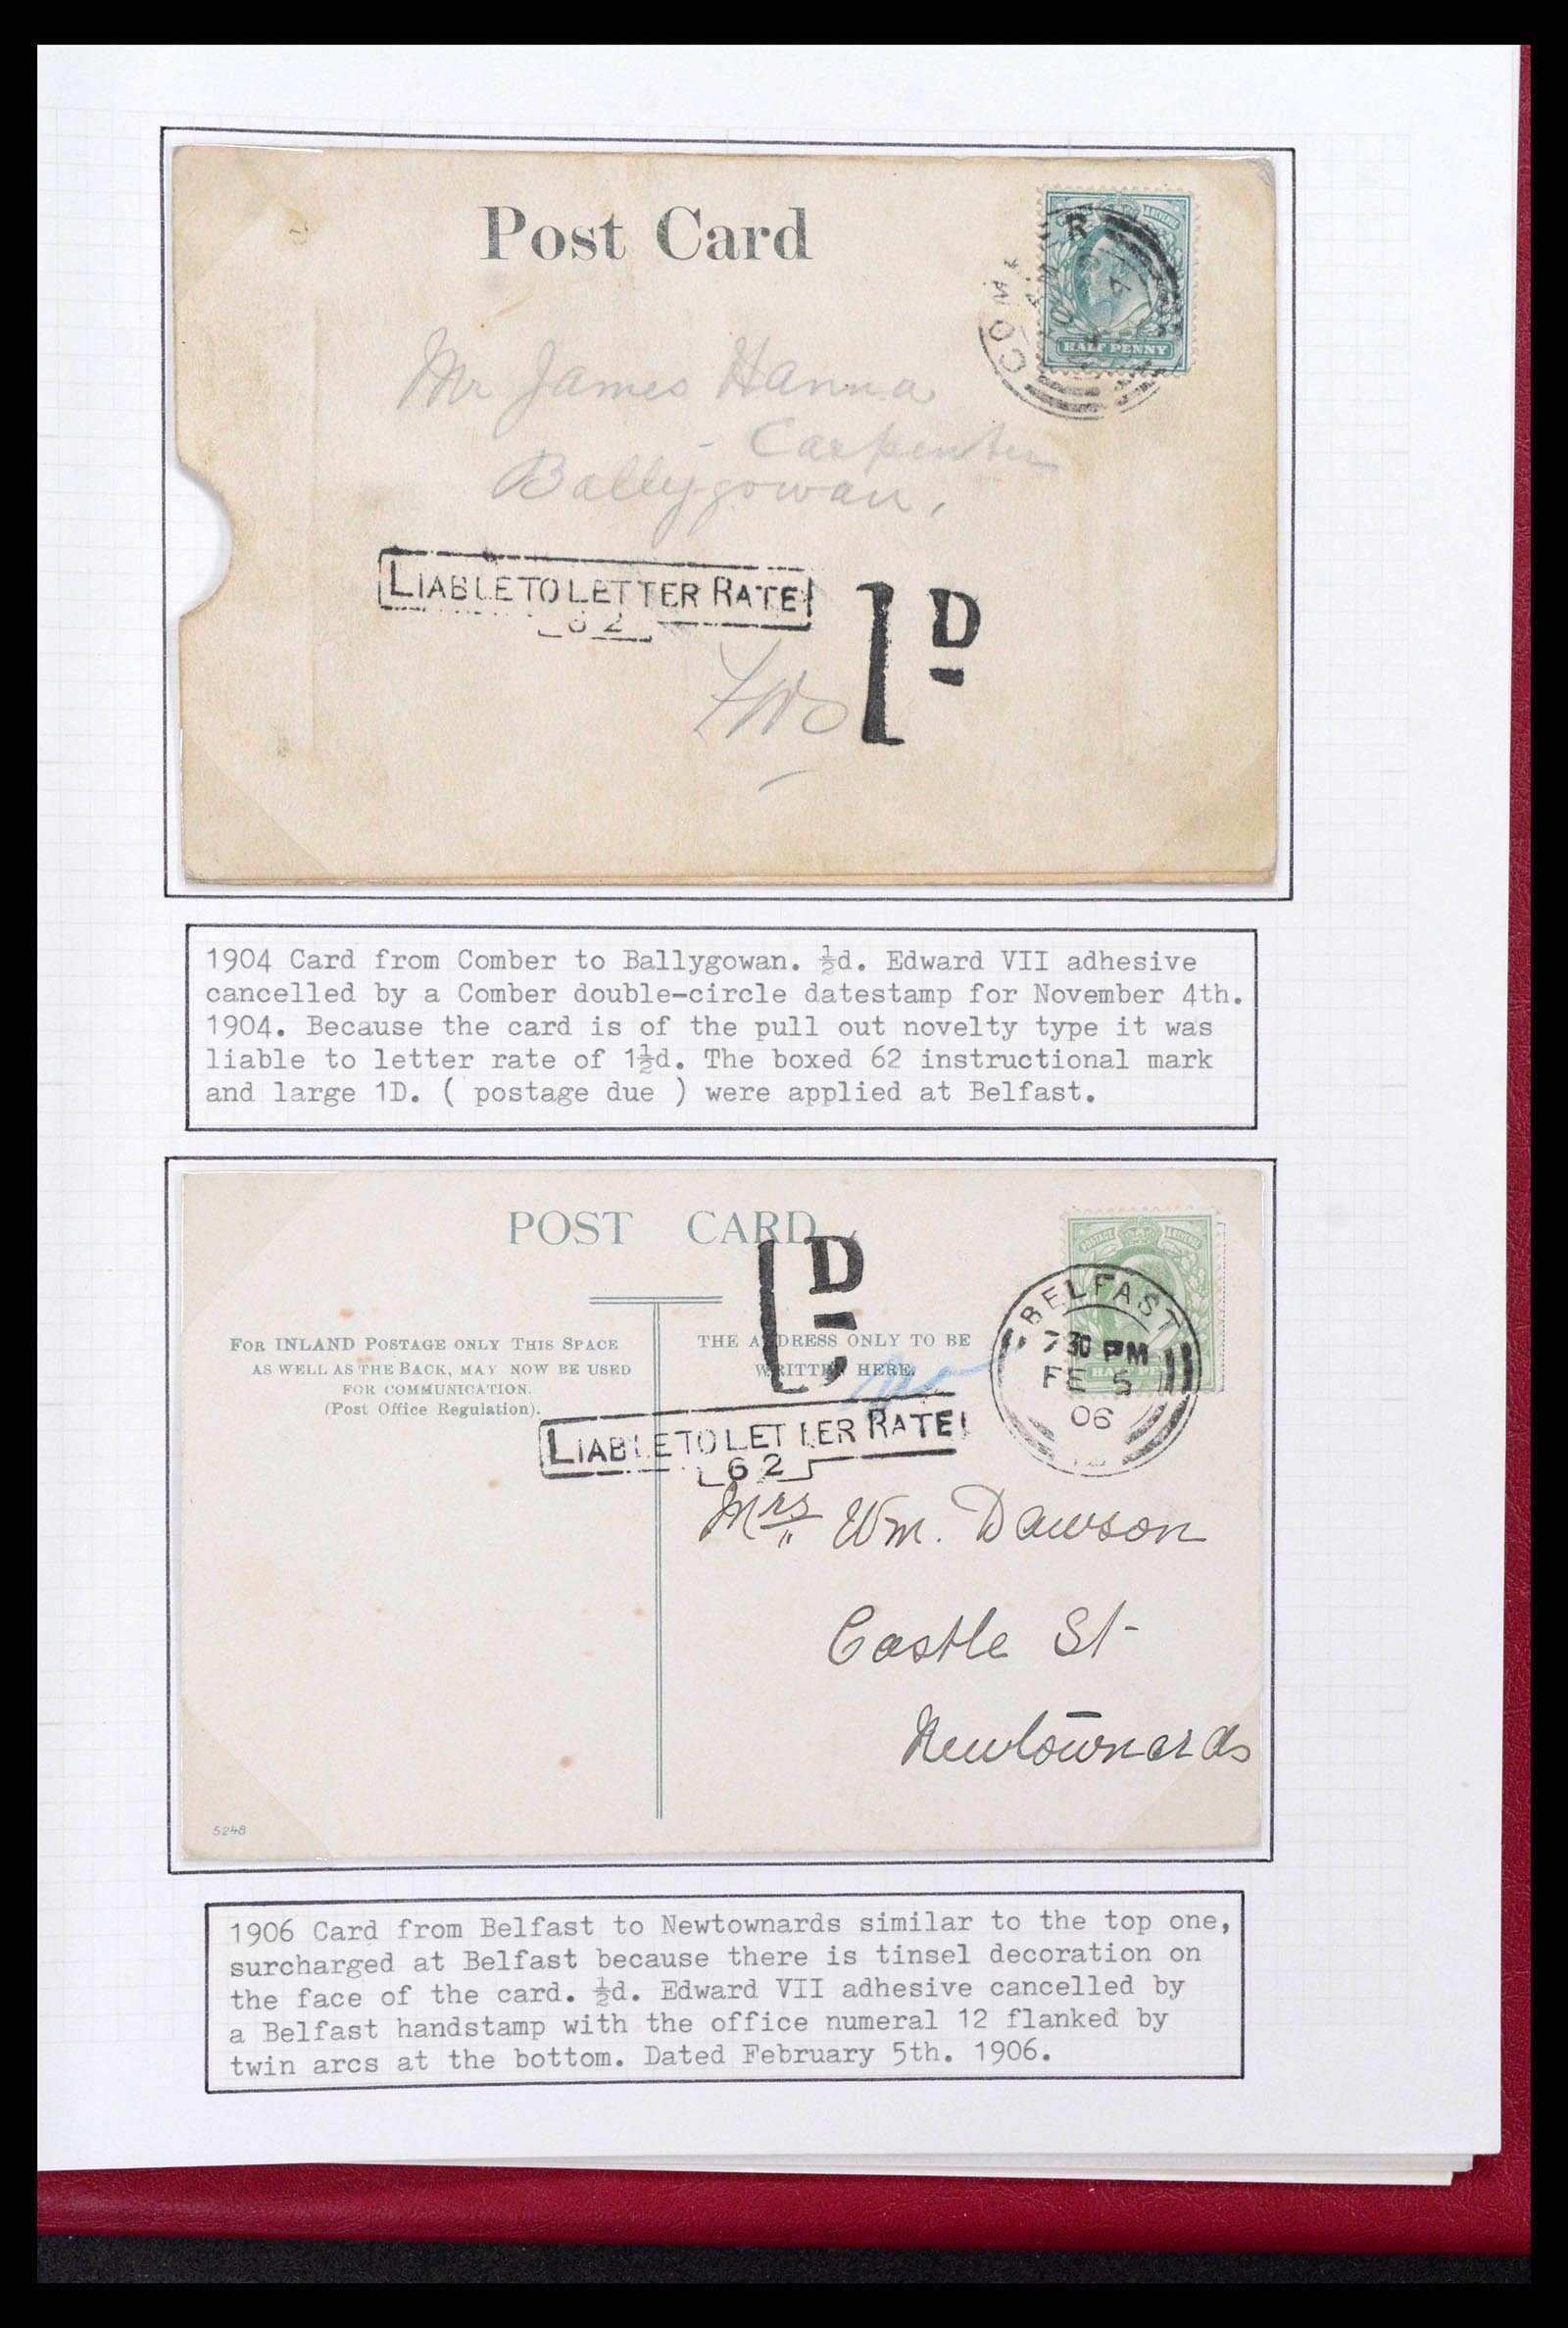 Post Card
HALF PENNY
Mr James Hanna
- Carpenter
Ballygowan,
LIABLE TO LETTER RATE
62
1D
1904 Card from Comber to Ballygowan. ½d. Edward VII adhesive
cancelled by a Comber double-circle datestamp for November 4th.
1904. Because the card is of the pull out novelty type it was
liable to letter rate of 1½d. The boxed 62 instructional mark
and large 1D. ( postage due ) were applied at Belfast.
POST CARD
1D
BELFAST
7 30 PM
FE 5
06
12
FOR INLAND POSTAGE ONLY THIS SPACE
AS WELL AS THE BACK, MAY NOW BE USED
FOR COMMUNICATION.
(Post Office Regulation).
THE ADDRESS ONLY TO BE
WRITTEN HERE.
LIABLE TO LETTER RATE
62
Mrs Wm. Dawson
Castle St
Newtownards
5248
1906 Card from Belfast to Newtownards similar to the top one,
surcharged at Belfast because there is tinsel decoration on
the face of the card. ½d. Edward VII adhesive cancelled by
a Belfast handstamp with the office numeral 12 flanked by
twin arcs at the bottom. Dated February 5th. 1906.